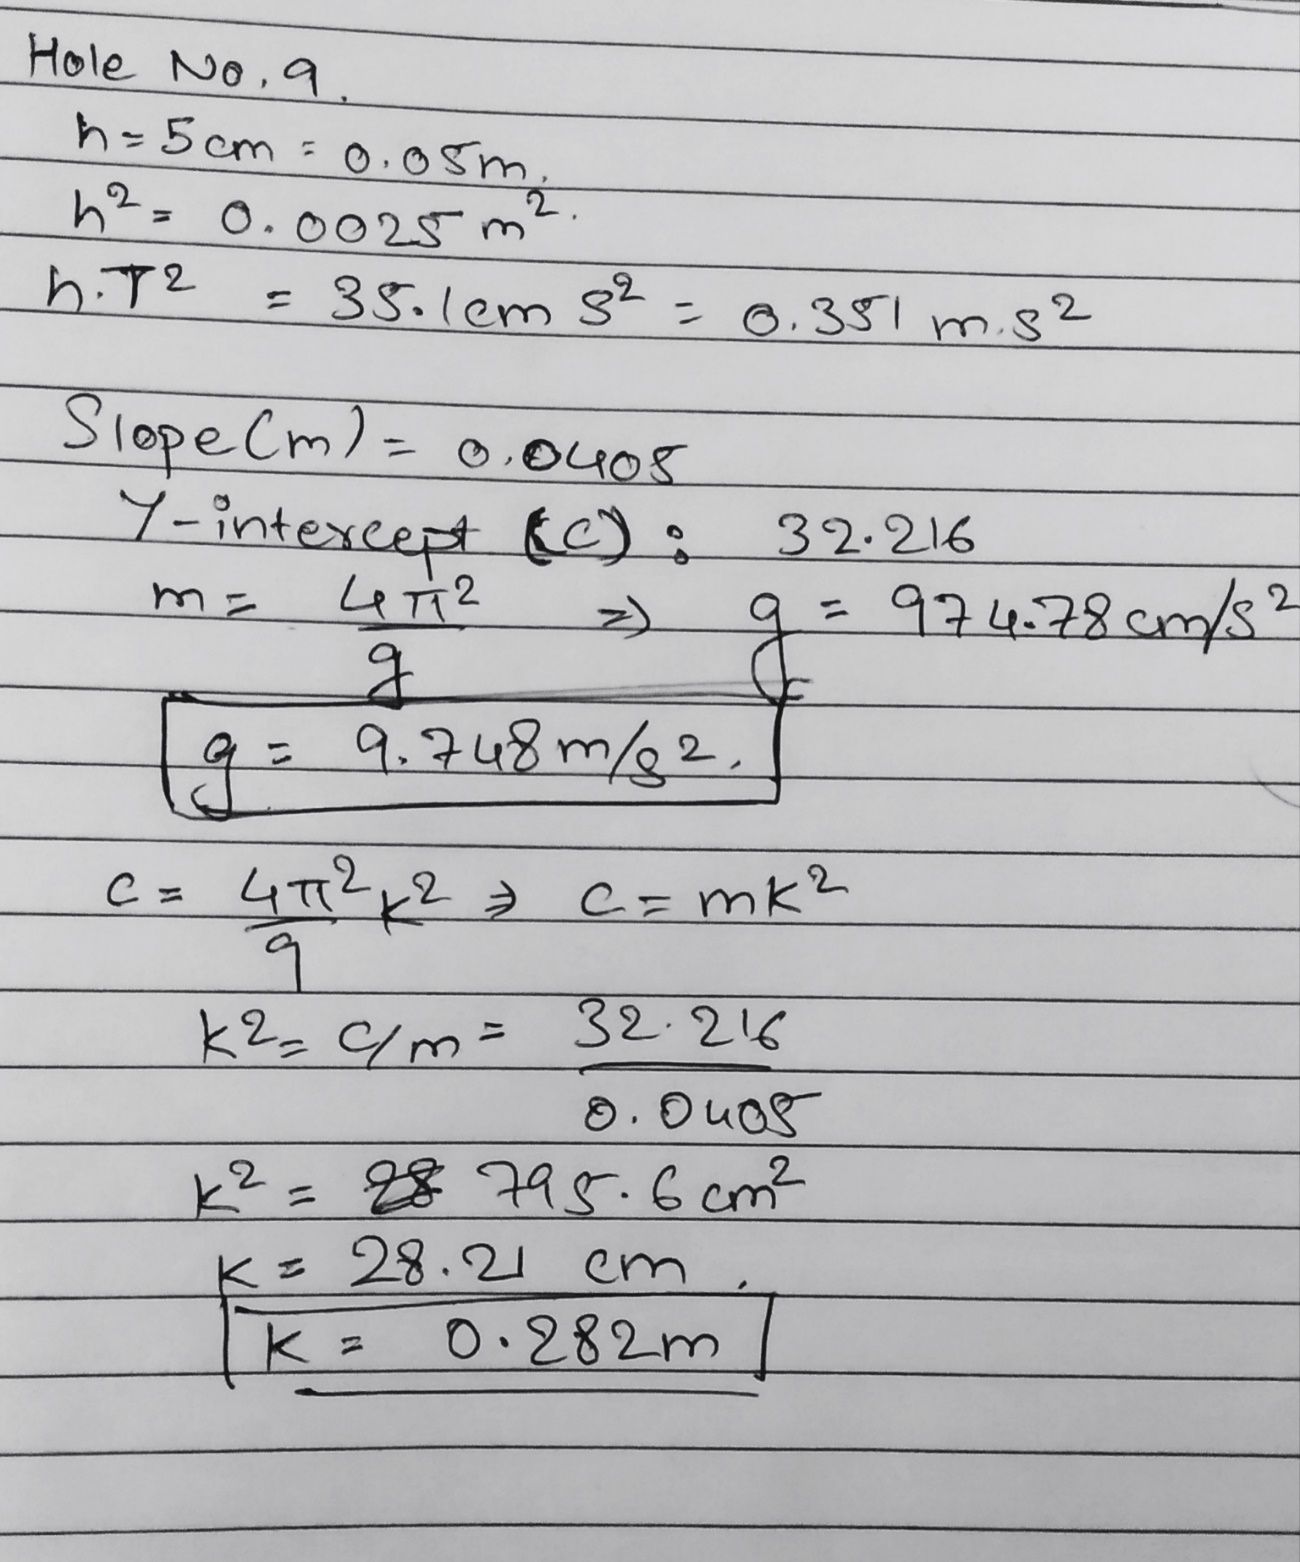 Hole No. 9.
h = 5cm = 0.05m.
h² = 0.0025 m².
h.T² = 35.1cm s² = 0.351 m.s²
Slope (m) = 0.0405
Y-intercept (c) : 32.216
m = 4π²/g ⇒ g = 974.78 cm/s²
g = 9.748 m/s².
c = 4π²/g k² ⇒ c = mk²
k² = c/m = 32.216/0.0405
k² = 795.6 cm²
k = 28.21 cm.
k = 0.282m